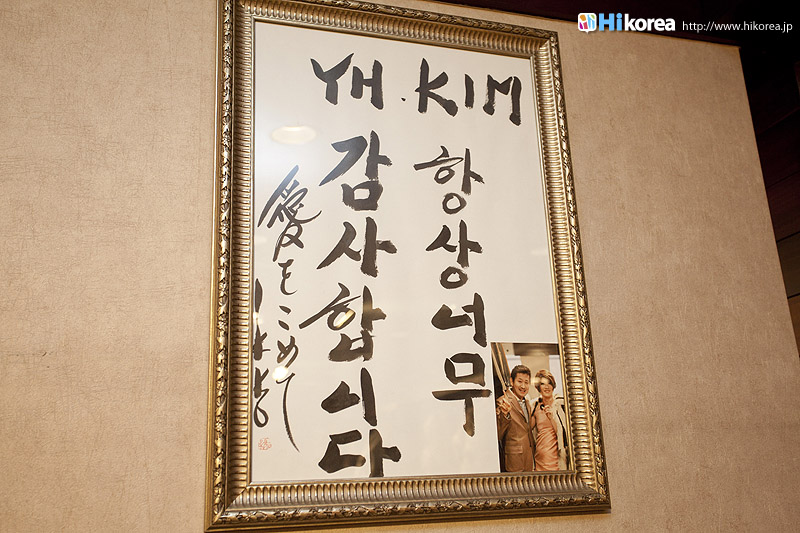 Hikorea http://www.hikorea.jp
YH.KIM
항상너무
감사합니다
愛をこめて